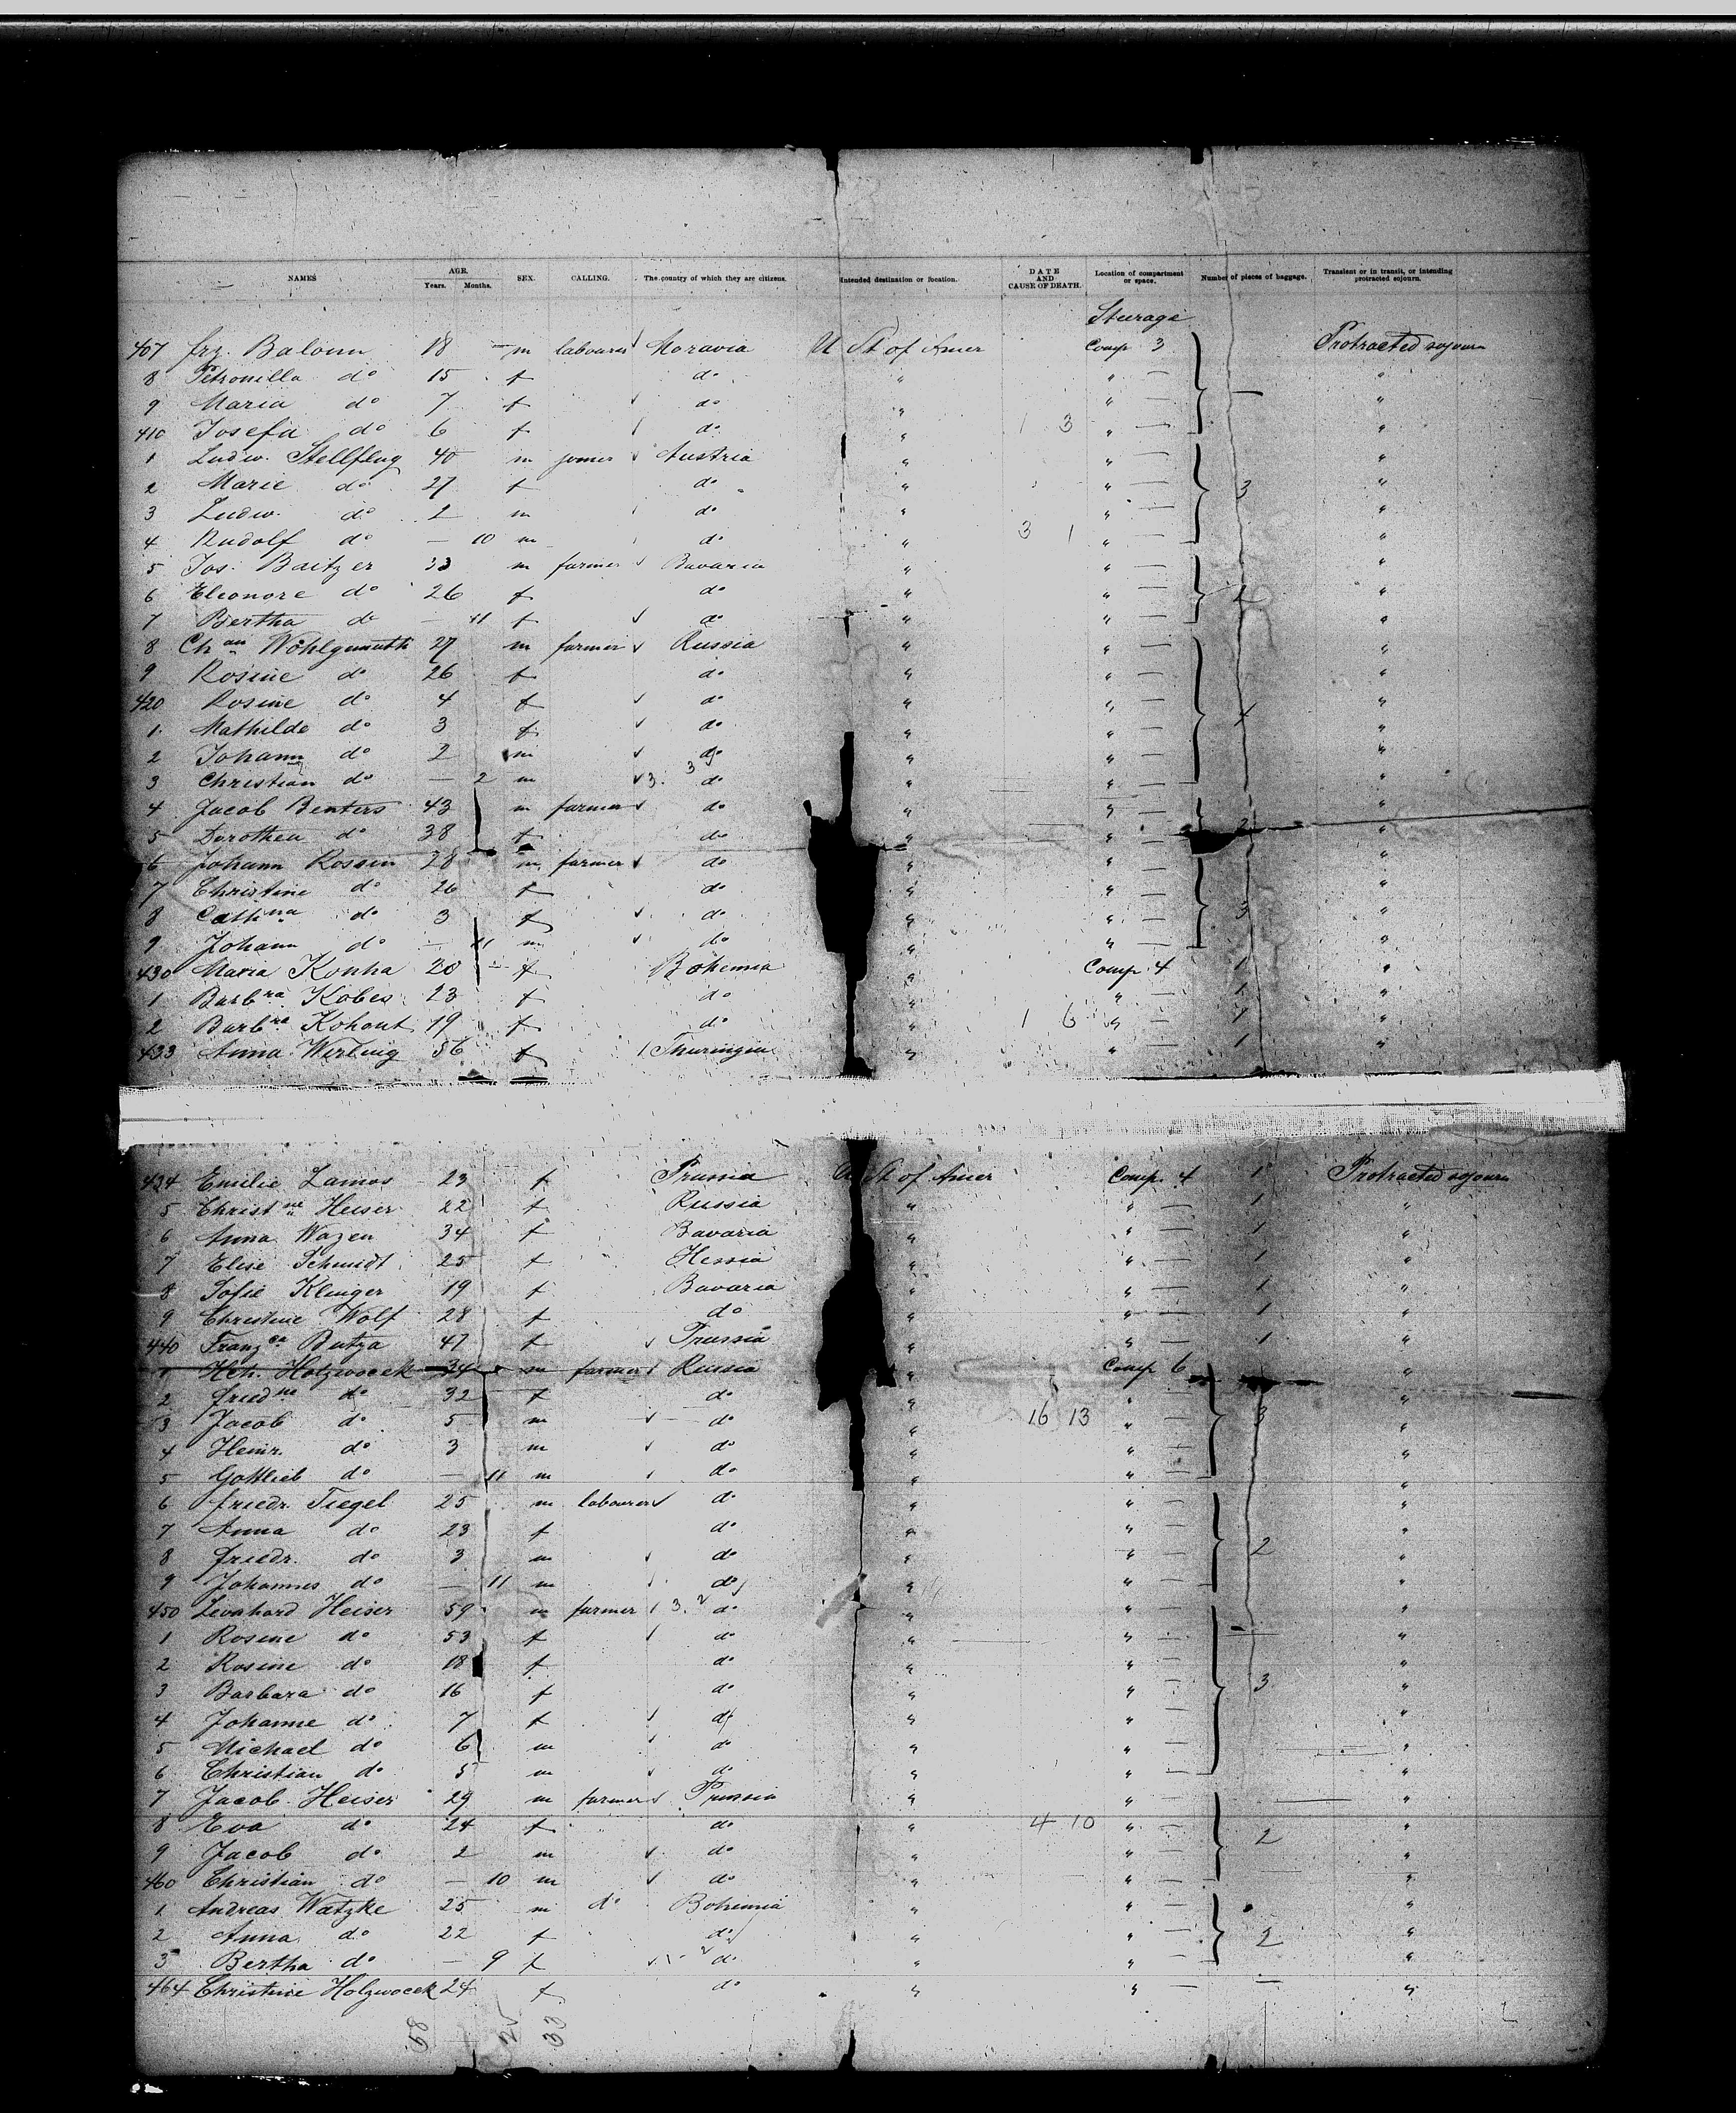 NAMES AGE. Years. Months. SEX. CALLING. The country of which they are citizens. Intended destination or location. DATE AND CAUSE OF DEATH. Location of compartment or space. Number of pieces of baggage. Transient or in transit, or intending protracted sojourn.
Steerage
407 frz. Baloun 18 — m labourer Moravia U St of Amer Comp 3 Protracted sojourn
8 Petronilla do 15 f do " " — "
9 Maria do 7 f do " " — — "
410 Josefa do 6 f do " 1 3 " — "
1 Ludw. Stellflug 40 m joiner Austria " " — "
2 Marie do 27 f do " " — 3 "
3 Ludw. do 2 m do " " — "
4 Rudolf do — 10 m do " 3 1 " — "
5 Jos. Baitzer 33 m farmer Bavaria " " — "
6 Eleonore do 26 f do " " — 2 "
7 Bertha do — 11 f do " " — "
8 Chan Wohlgemuth 27 m farmer Russia " " — "
9 Rosine do 26 f do " " — "
420 Rosine do 4 f do " " — "
1 Mathilde do 3 f do " " — 4 "
2 Johann do 2 m do " " — "
3 Christian do — 2 m 3. 3 do " " — "
4 Jacob Benters 43 m farmer do " " — "
5 Dorothea do 38 f do " " — 2 "
6 Johann Rossin 28 m farmer do " " — "
7 Christine do 26 f do " " — "
8 Cathna do 3 f do " " — 3 "
9 Johann do — 11 m do " " — "
430 Maria Konha 20 — f Bohemia " Comp. 4 1 "
1 Barbra Kobes 23 f do " " — 1 "
2 Barbra Kohout 19 f do " 1 6 " — 1 "
433 Anna Werling 56 f Thuringia " " — 1 "
434 Emilie Lamos 23 f Prussia U St of Amer Comp. 4 1 Protracted sojourn
5 Christne Heiser 22 f Russia " " — 1 "
6 Anna Wazen 34 f Bavaria " " — 1 "
7 Elise Schmidt 25 f Hessia " " — 1 "
8 Sofie Klinger 19 f Bavaria " " — 1 "
9 Christine Wolf 28 f do " " — 1 "
440 Franzca Butza 47 f Prussia " " — 1 "
1 Hch. Holzwocek 34 m farmer Russia " Comp 6 "
2 friedne do 32 f do " " "
3 Jacob do 5 m do " 16 13 " — 3 "
4 Heinr. do 3 m do " " — "
5 Gottlieb do — 11 m do " " — "
6 friedr. Tiegel 25 m labourer do " " — "
7 Anna do 23 f do " " — "
8 friedr. do 3 m do " " — 2 "
9 Johannes do — 11 m do " " — "
450 Leonhard Heiser 59 m farmer 3. do " " — "
1 Rosine do 53 f do " " — "
2 Rosine do 18 f do " " — "
3 Barbara do 16 f do " " — 3 "
4 Johanne do 7 f do " " — "
5 Michael do 6 m do " " — "
6 Christian do 5 m do " " — "
7 Jacob Heiser 29 m farmer Prussia " " — "
8 Eva do 24 f do " 4 10 " — "
9 Jacob do 2 m do " " — 2 "
460 Christian do — 10 m do " " — "
1 Andreas Watzke 25 m do Bohemia " " — "
2 Anna do 22 f do " " — 2 "
3 Bertha do — 9 f do " " — "
464 Christine Holzwocek 24 f do " " — — "
58 25 33